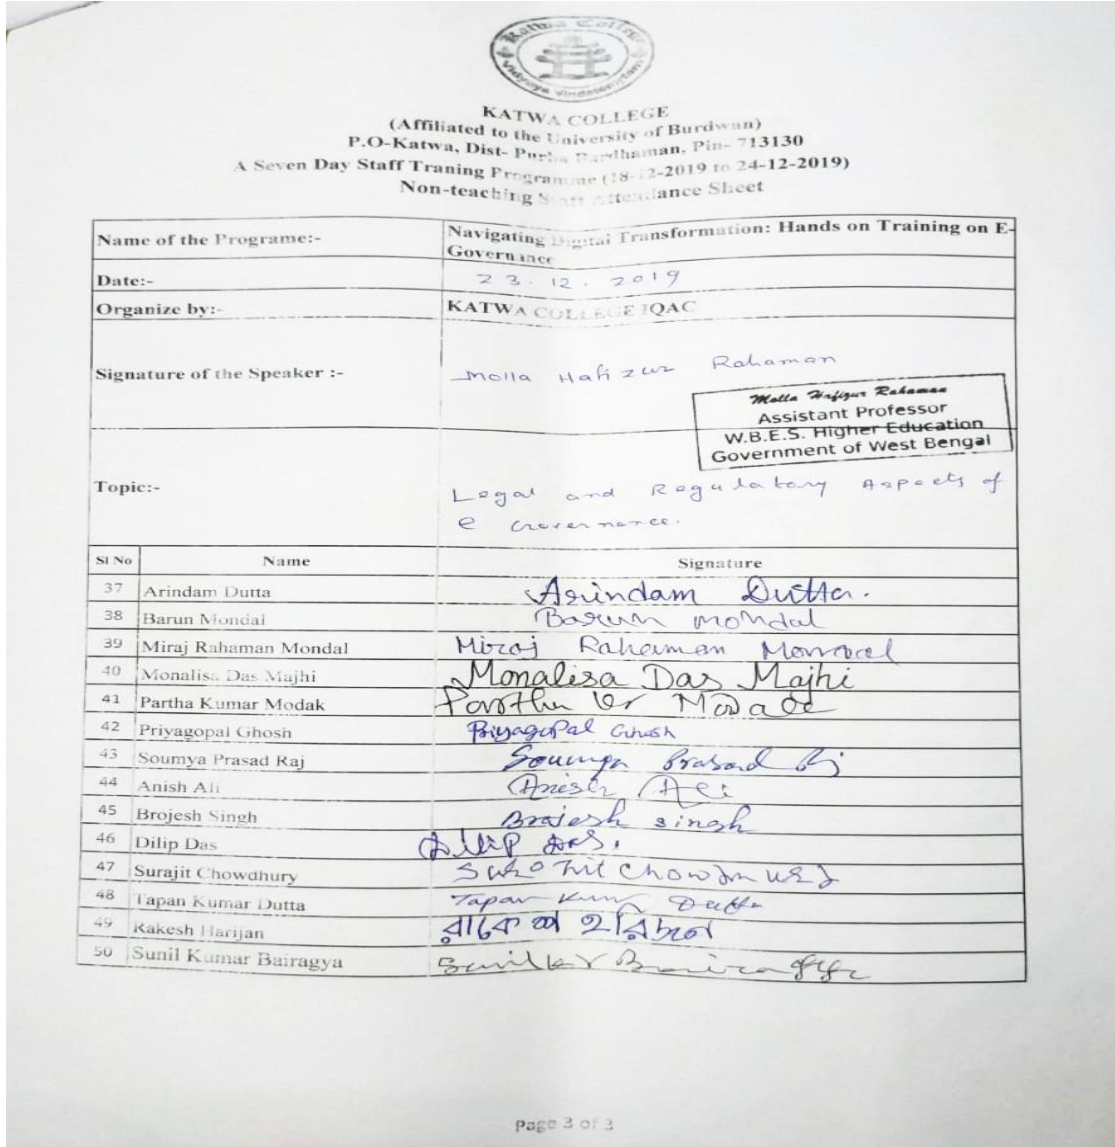 Katwa College
KATWA COLLEGE
(Affiliated to the University of Burdwan)
P.O-Katwa, Dist- Purba Bardhaman, Pin- 713130
A Seven Day Staff Traning Programme (18-12-2019 to 24-12-2019)
Non-teaching Staff Attendance Sheet
Name of the Programe:- Navigating Digital Transformation: Hands on Training on E-
Governance
Date:- 23.12.2019
Organize by:- KATWA COLLEGE IQAC
Signature of the Speaker :- Molla Hafizur Rahaman
Molla Hafizur Rahaman
Assistant Professor
W.B.E.S. Higher Education
Government of West Bengal
Topic:- Legal and Regulatory Aspects of
e Governance.
Sl No Name Signature
37 Arindam Dutta Arindam Dutta.
38 Barun Mondal Barun Mondal
39 Miraj Rahaman Mondal Miraj Rahaman Mondal
40 Monalisa Das Majhi Monalisa Das Majhi
41 Partha Kumar Modak Partha Kr Modak
42 Priyagopal Ghosh Priyagopal Ghosh
43 Soumya Prasad Raj Soumya Prasad Raj
44 Anish Ali Anish Ali
45 Brojesh Singh Brajesh singh
46 Dilip Das Dilip Das.
47 Surajit Chowdhury Chowdhury
48 Tapan Kumar Dutta Tapan Kumar Dutta
49 Rakesh Harijan রাকেশ হরিজন
50 Sunil Kumar Bairagya Sunil Kr Bairagya
Page 3 of 3